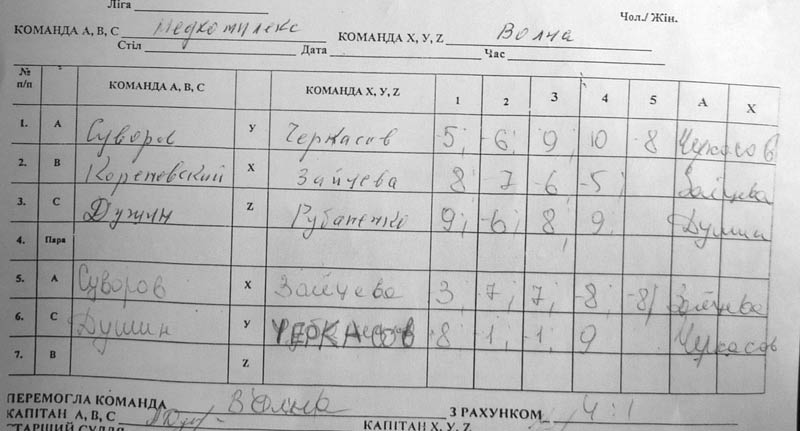 Ліга
Чол./ Жін.
КОМАНДА А, В, С Медкомплекс КОМАНДА Х, У, Z Волна
Стіл Дата Час
№ п/п КОМАНДА А, В, С КОМАНДА Х, У, Z 1 2 3 4 5 А Х
1. А Суворов У Черкасов -5; -6; 9; 10 -8 Черкасов
2. В Кореневский Х Зайцева 8; -7 -6 -5; Зайцева
3. С Душин Z Рубаненко 9; -6; 8; 9 Душин
4. Пара
5. А Суворов Х Зайцева 3; -7; 7; -8; -8/ Зайцева
6. С Душин У ЧЕРКАСОВ -8 -1; -1; 9 Черкасов
7. В Z
ПЕРЕМОГЛА КОМАНДА Волна З РАХУНКОМ 4:1
КАПІТАН А, В, С КАПІТАН Х, У, Z
СТАРШИЙ СУДДЯ